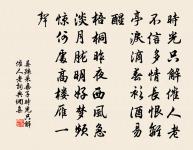 時光只解催人老
不信多情長恨離
亭淚滴春衫酒易
醒
梧桐昨夜西風急
淡月朧明好夢頻
驚何處高樓雁一
聲
晏殊采桑子時光只解
催人老詞